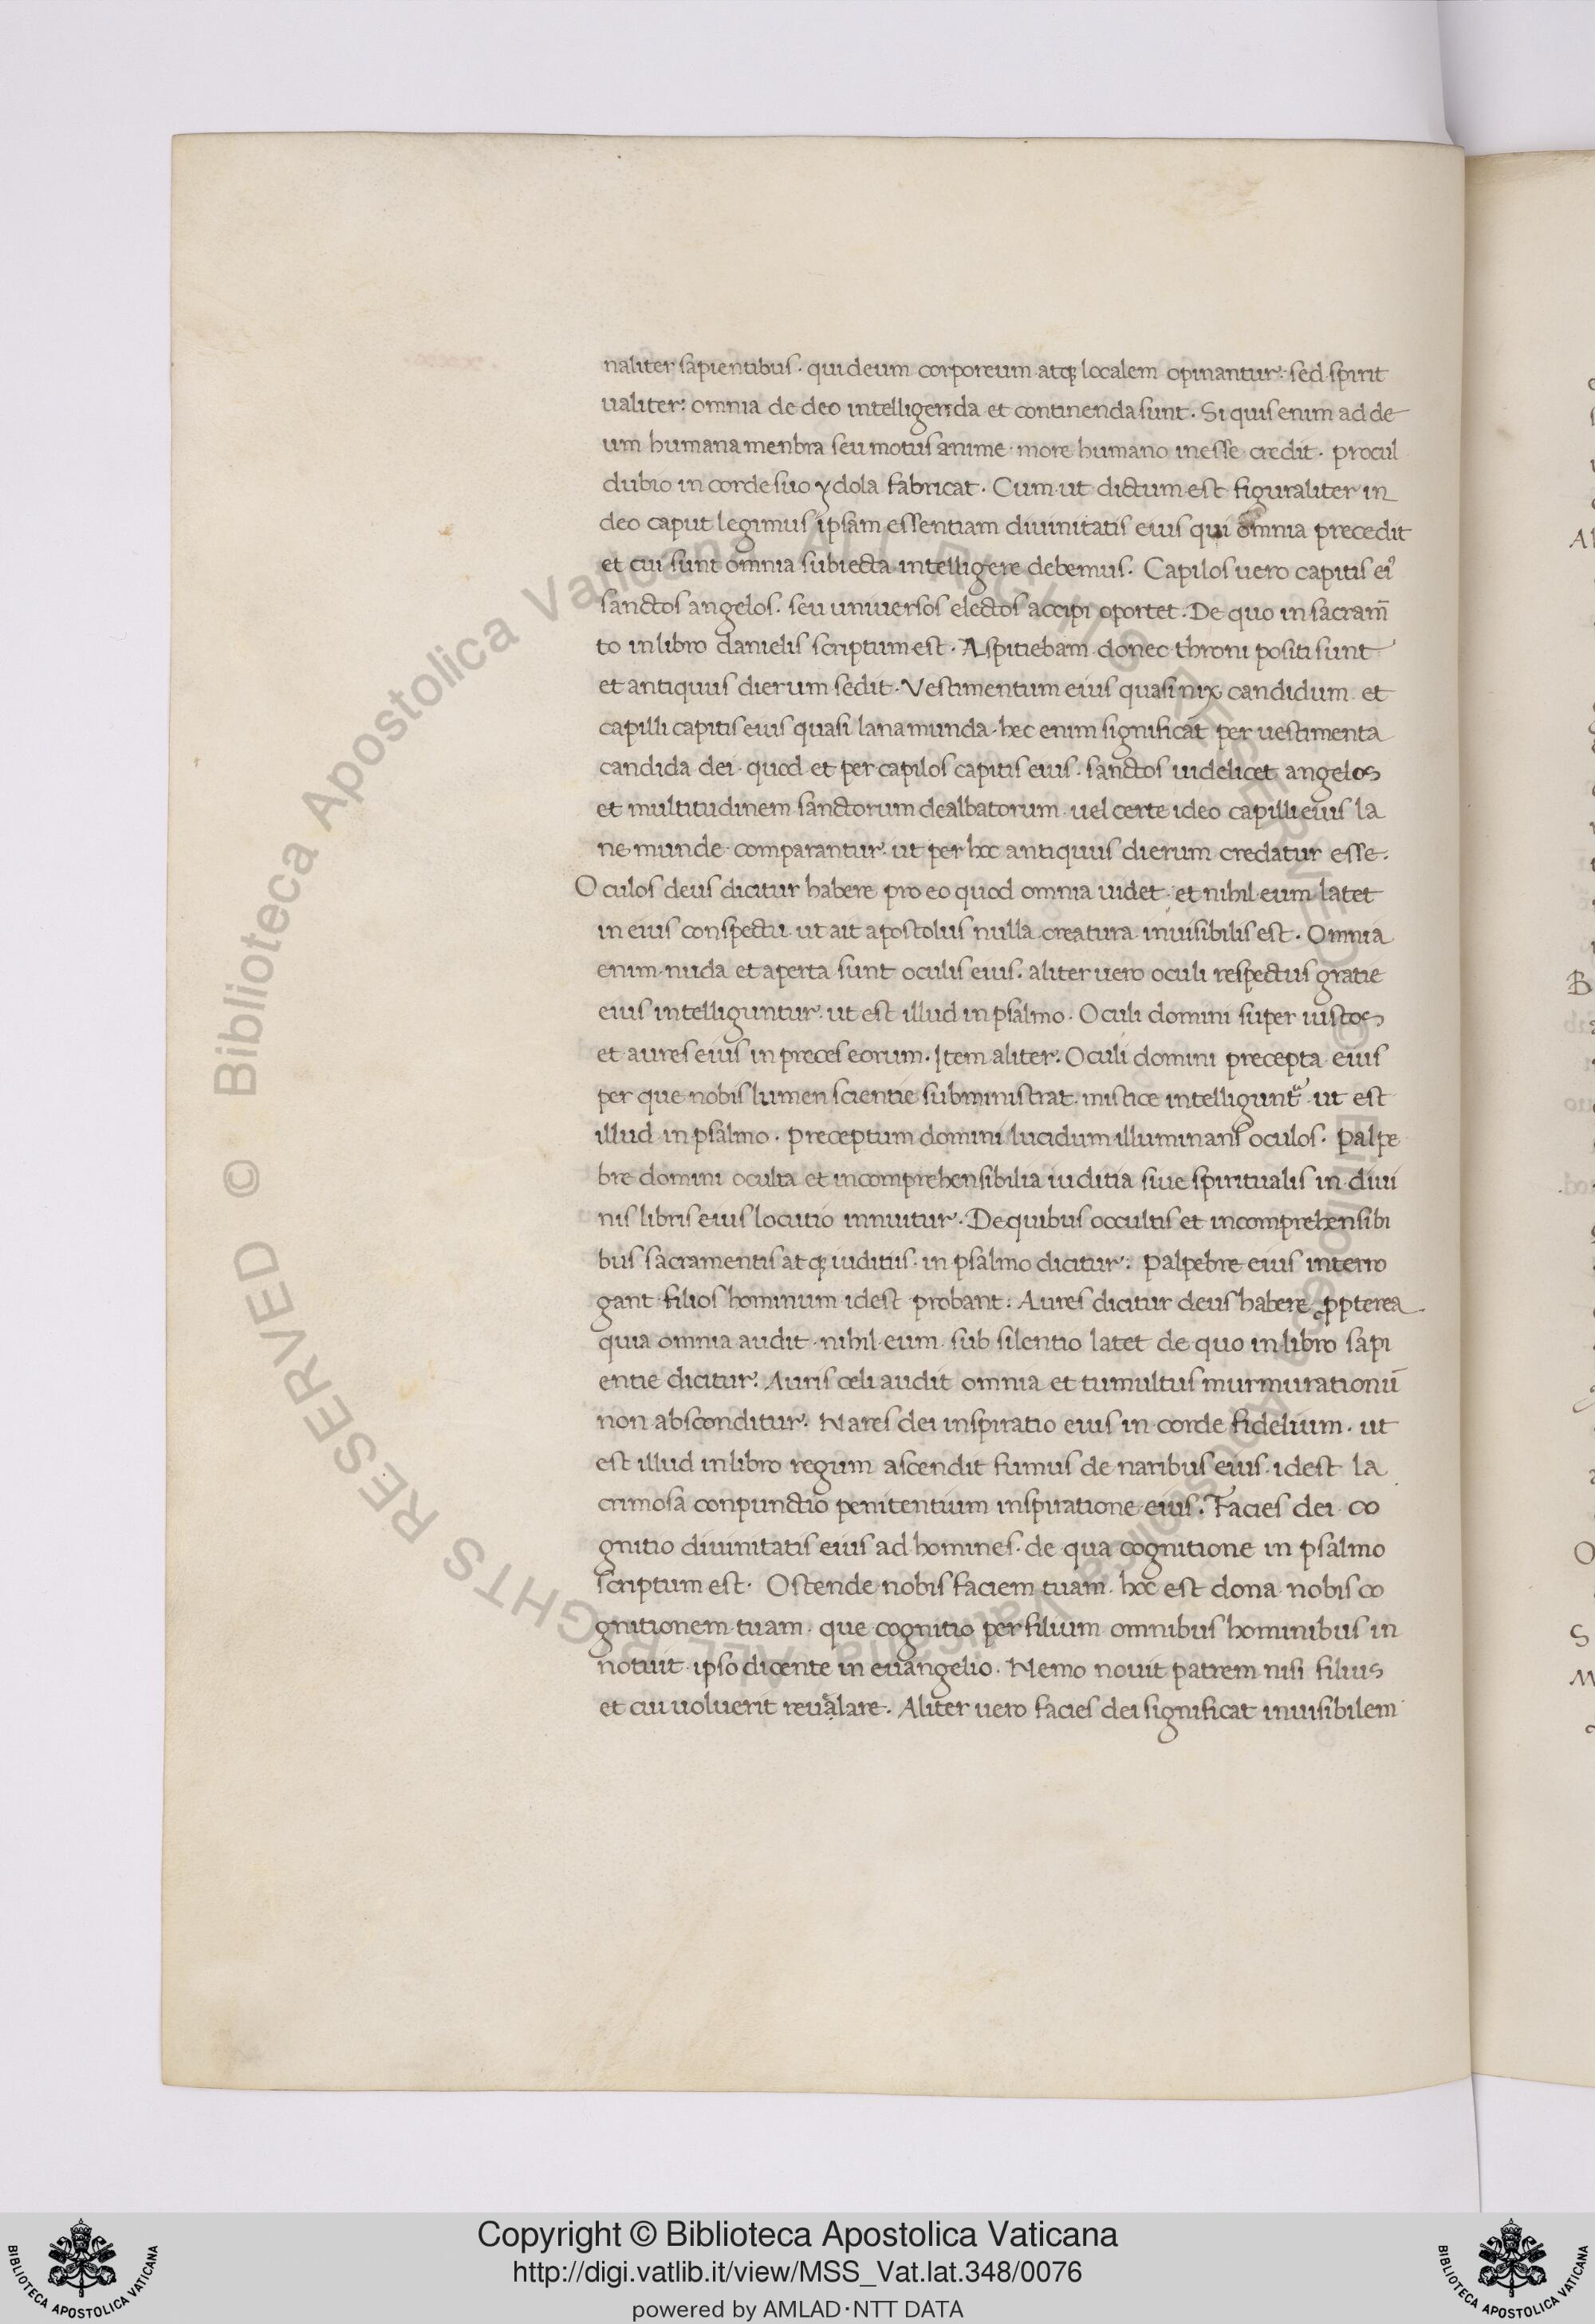 naliter sapientibus. qui deum corporeum atqꝫ localem opinantur: sed spirit
ualiter: omnia de deo intelligenda et continenda sunt. Si quis enim ad de
um humana menbra seu motus anime more humano inesse credit. procul
dubio in corde suo ydola fabricat. Cum ut dictum est figuraliter in
deo caput legimus ipsam essentiam diuinitatis eius qui omnia precedit
et cui sunt omnia subiecta intelligere debemus. Capilos uero capitis eiꝰ
sanctos angelos. seu uniuersos electos accipi oportet. De quo in sacram̄
to in libro danielis scriptum est. Aspitiebam donec throni positi sunt
et antiquus dierum sedit. Vestimentum eius quasi nix candidum et
capilli capitis eius quasi lana munda. hec enim significat per uestimenta
candida dei. quod et per capilos capitis eius. sanctos uidelicet angelos
et multitudinem sanctorum dealbatorum. uel certe ideo capilli eius la
ne munde comparantur. ut per hoc antiquus dierum credatur esse.
Oculos deus dicitur habere pro eo quod omnia uidet. et nihil eum latet
in eius conspectu ut ait apostolus nulla creatura inuisibilis est. Omnia
enim nuda et aperta sunt oculis eius. aliter uero oculi respectus gratie
eius intelliguntur. ut est illud in psalmo. Oculi domini super iustos
et aures eius in preces eorum. Item aliter. Oculi domini precepta eius
per que nobis lumen scientie subministrat. mistice intelligunt᷑ ut est
illud in psalmo. preceptum domini lucidum illuminans oculos. palpe
bre domini oculta et incomprehensibilia iuditia siue spiritualis in diui
nis libris eius locutio innuitur. De quibus occultis et incomprehensibi
bus sacramentis atqꝫ iuditiis. in psalmo dicitur: palpebre eius interro
gant filios hominum idest probant: Aures dicitur deus habere ꝓpterea
quia omnia audit. nihil eum sub silentio latet de quo in libro sapi
entie dicitur. Auris celi audit omnia et tumultus murmurationū
non absconditur. Nares dei inspiratio eius in corde fidelium. ut
est illud in libro regum ascendit fumus de naribus eius. idest la
crimosa conpunctio penitentium inspiratione eius. Facies dei co
gnitio diuinitatis eius ad homines. de qua cognitione in psalmo
scriptum est. Ostende nobis faciem tuam. hoc est dona nobis co
gnitionem tuam. que cognitio per filium omnibus hominibus in
notuit ipso dicente in euangelio. Nemo nouit patrem nisi filius
et cui uoluerit reualare. Aliter uero facies dei significat inuisibilem
© Biblioteca Apostolica Vaticana ALL RIGHTS RESERVED © Biblioteca Apostolica Vaticana ALL RIGHTS RESERVED
Copyright © Biblioteca Apostolica Vaticana
http://digi.vatlib.it/view/MSS_Vat.lat.348/0076
powered by AMLAD·NTT DATA
BIBLIOTECA APOSTOLICA VATICANA
BIBLIOTECA APOSTOLICA VATICANA